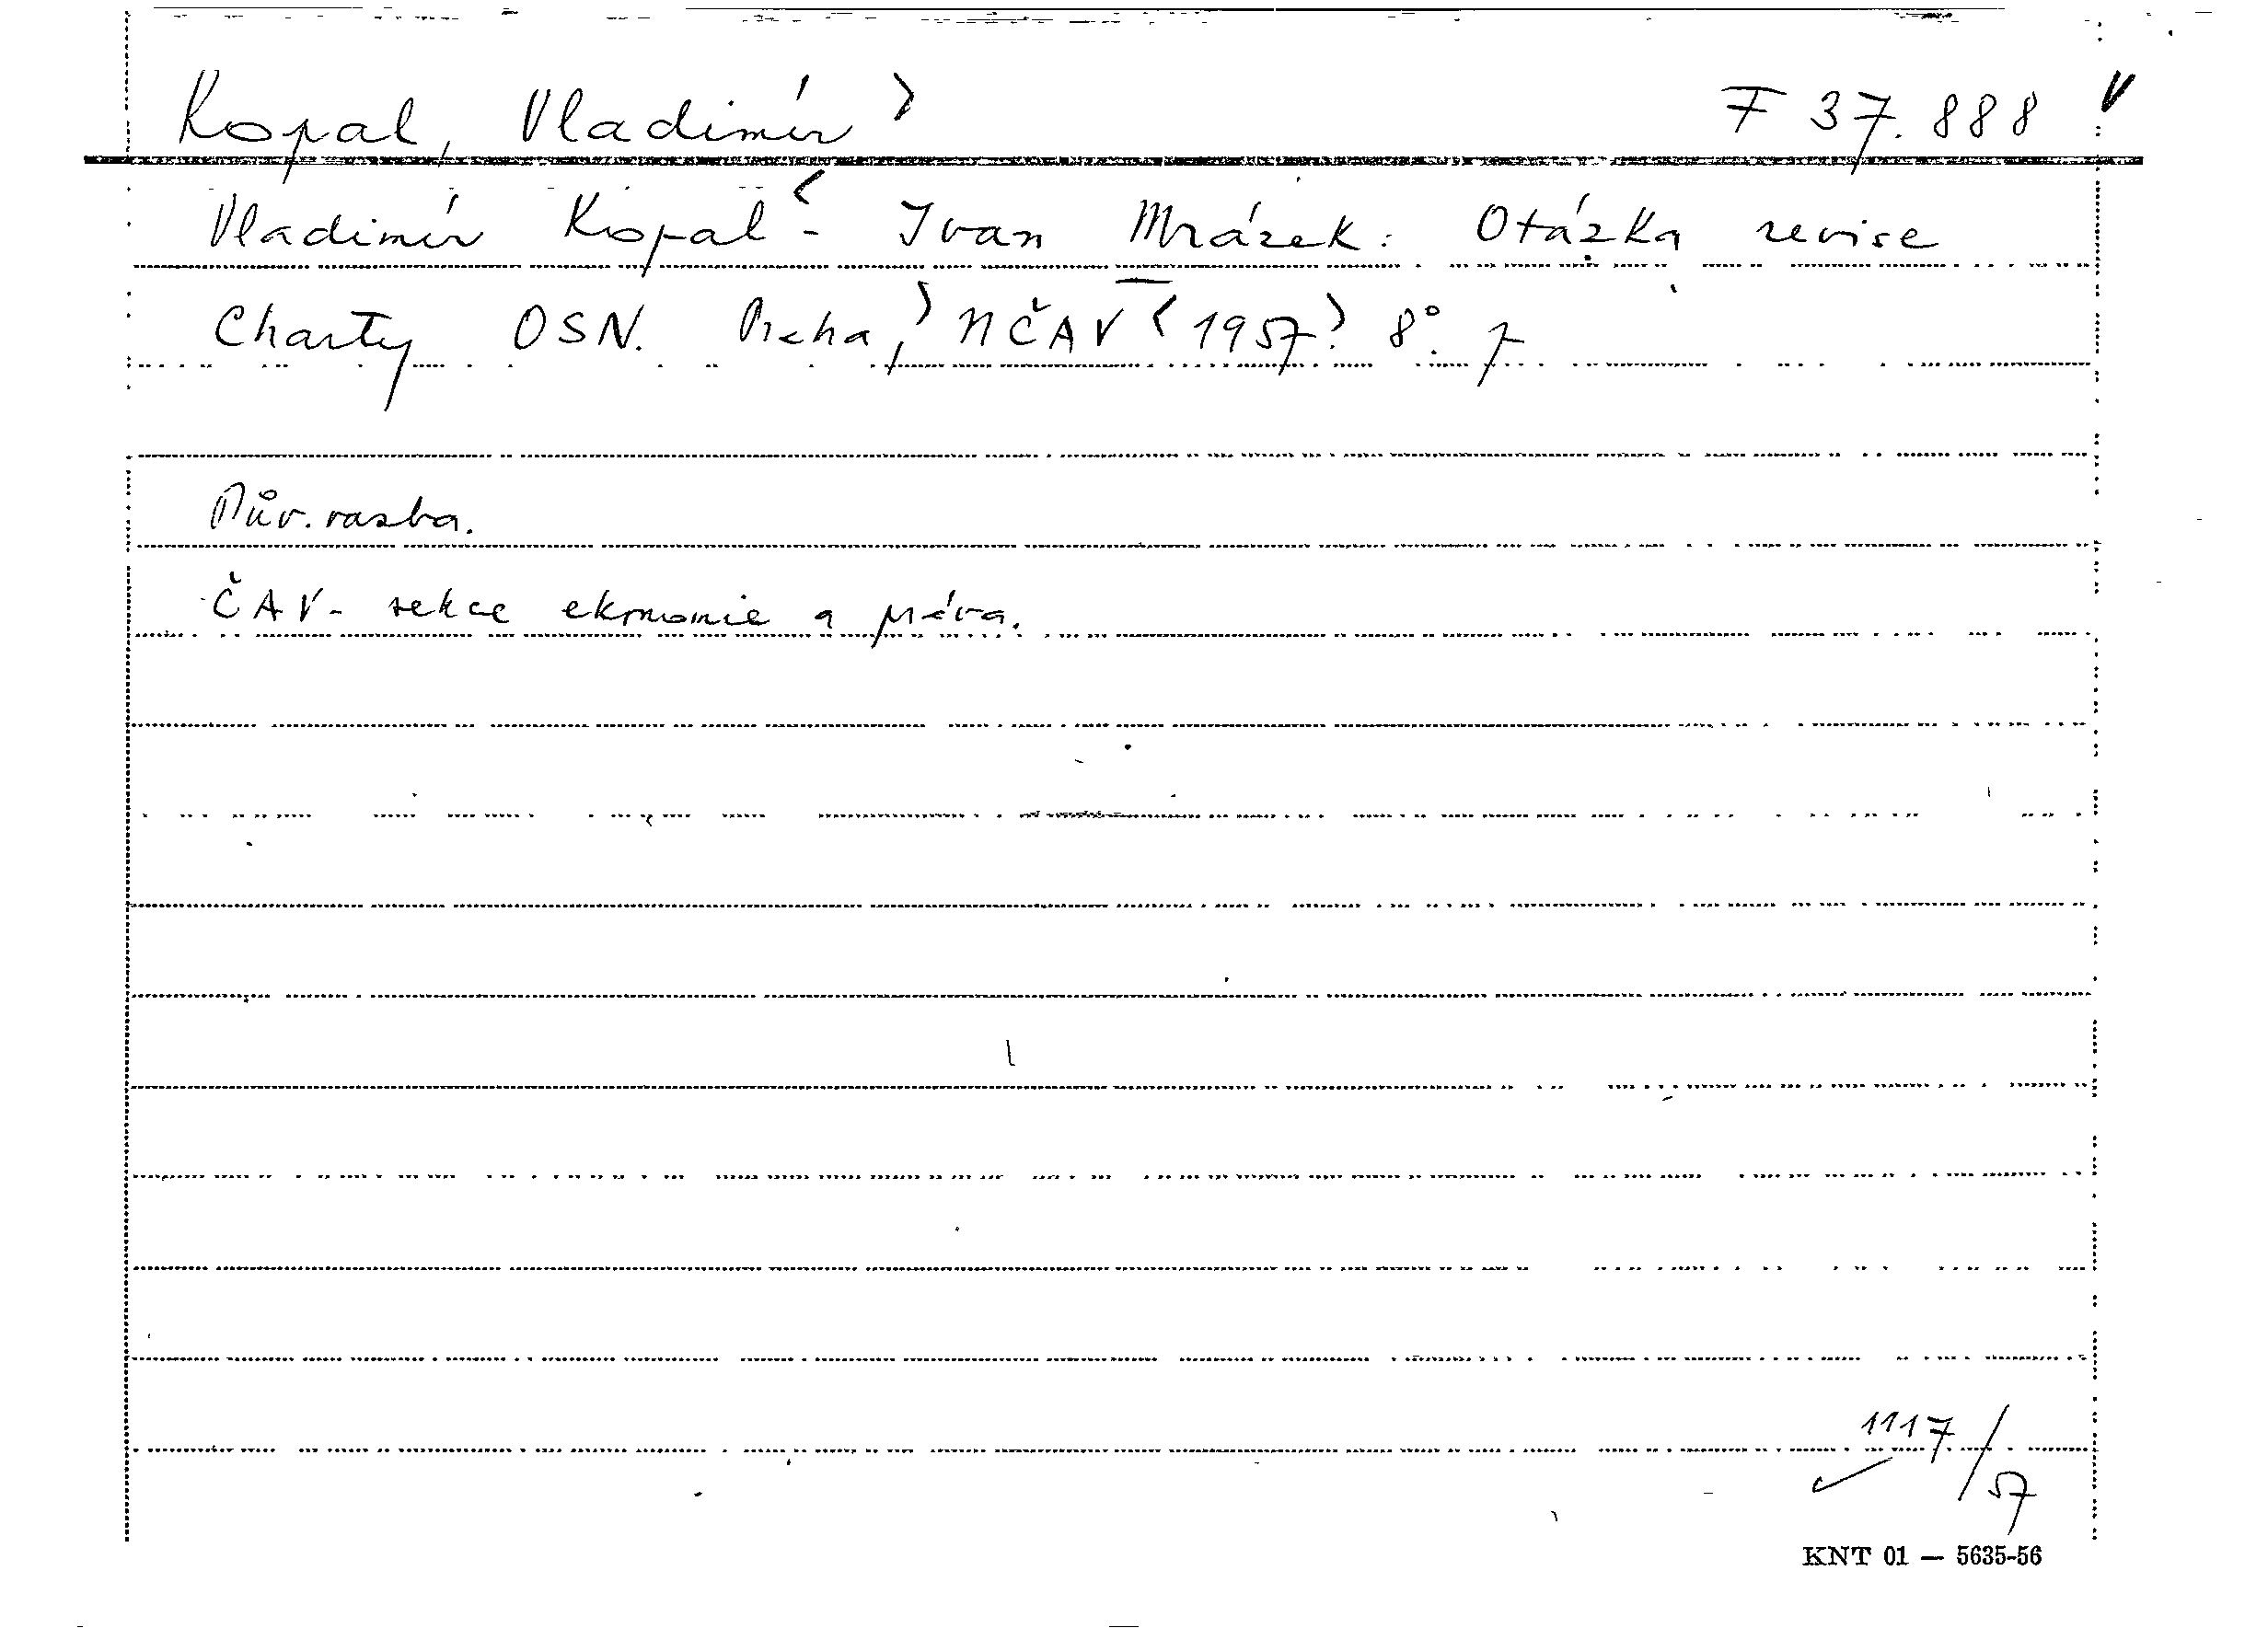 Kopal, Vladimír > F 37.888 V
Vladimír Kopal < - Ivan Mrázek: Otázka revise
Charty OSN. Praha, > NČAV < 1957 > 8°.
Pův. vazba.
ČAV - sekce ekonomie a práva.
1117/57
KNT 01 — 5635-56